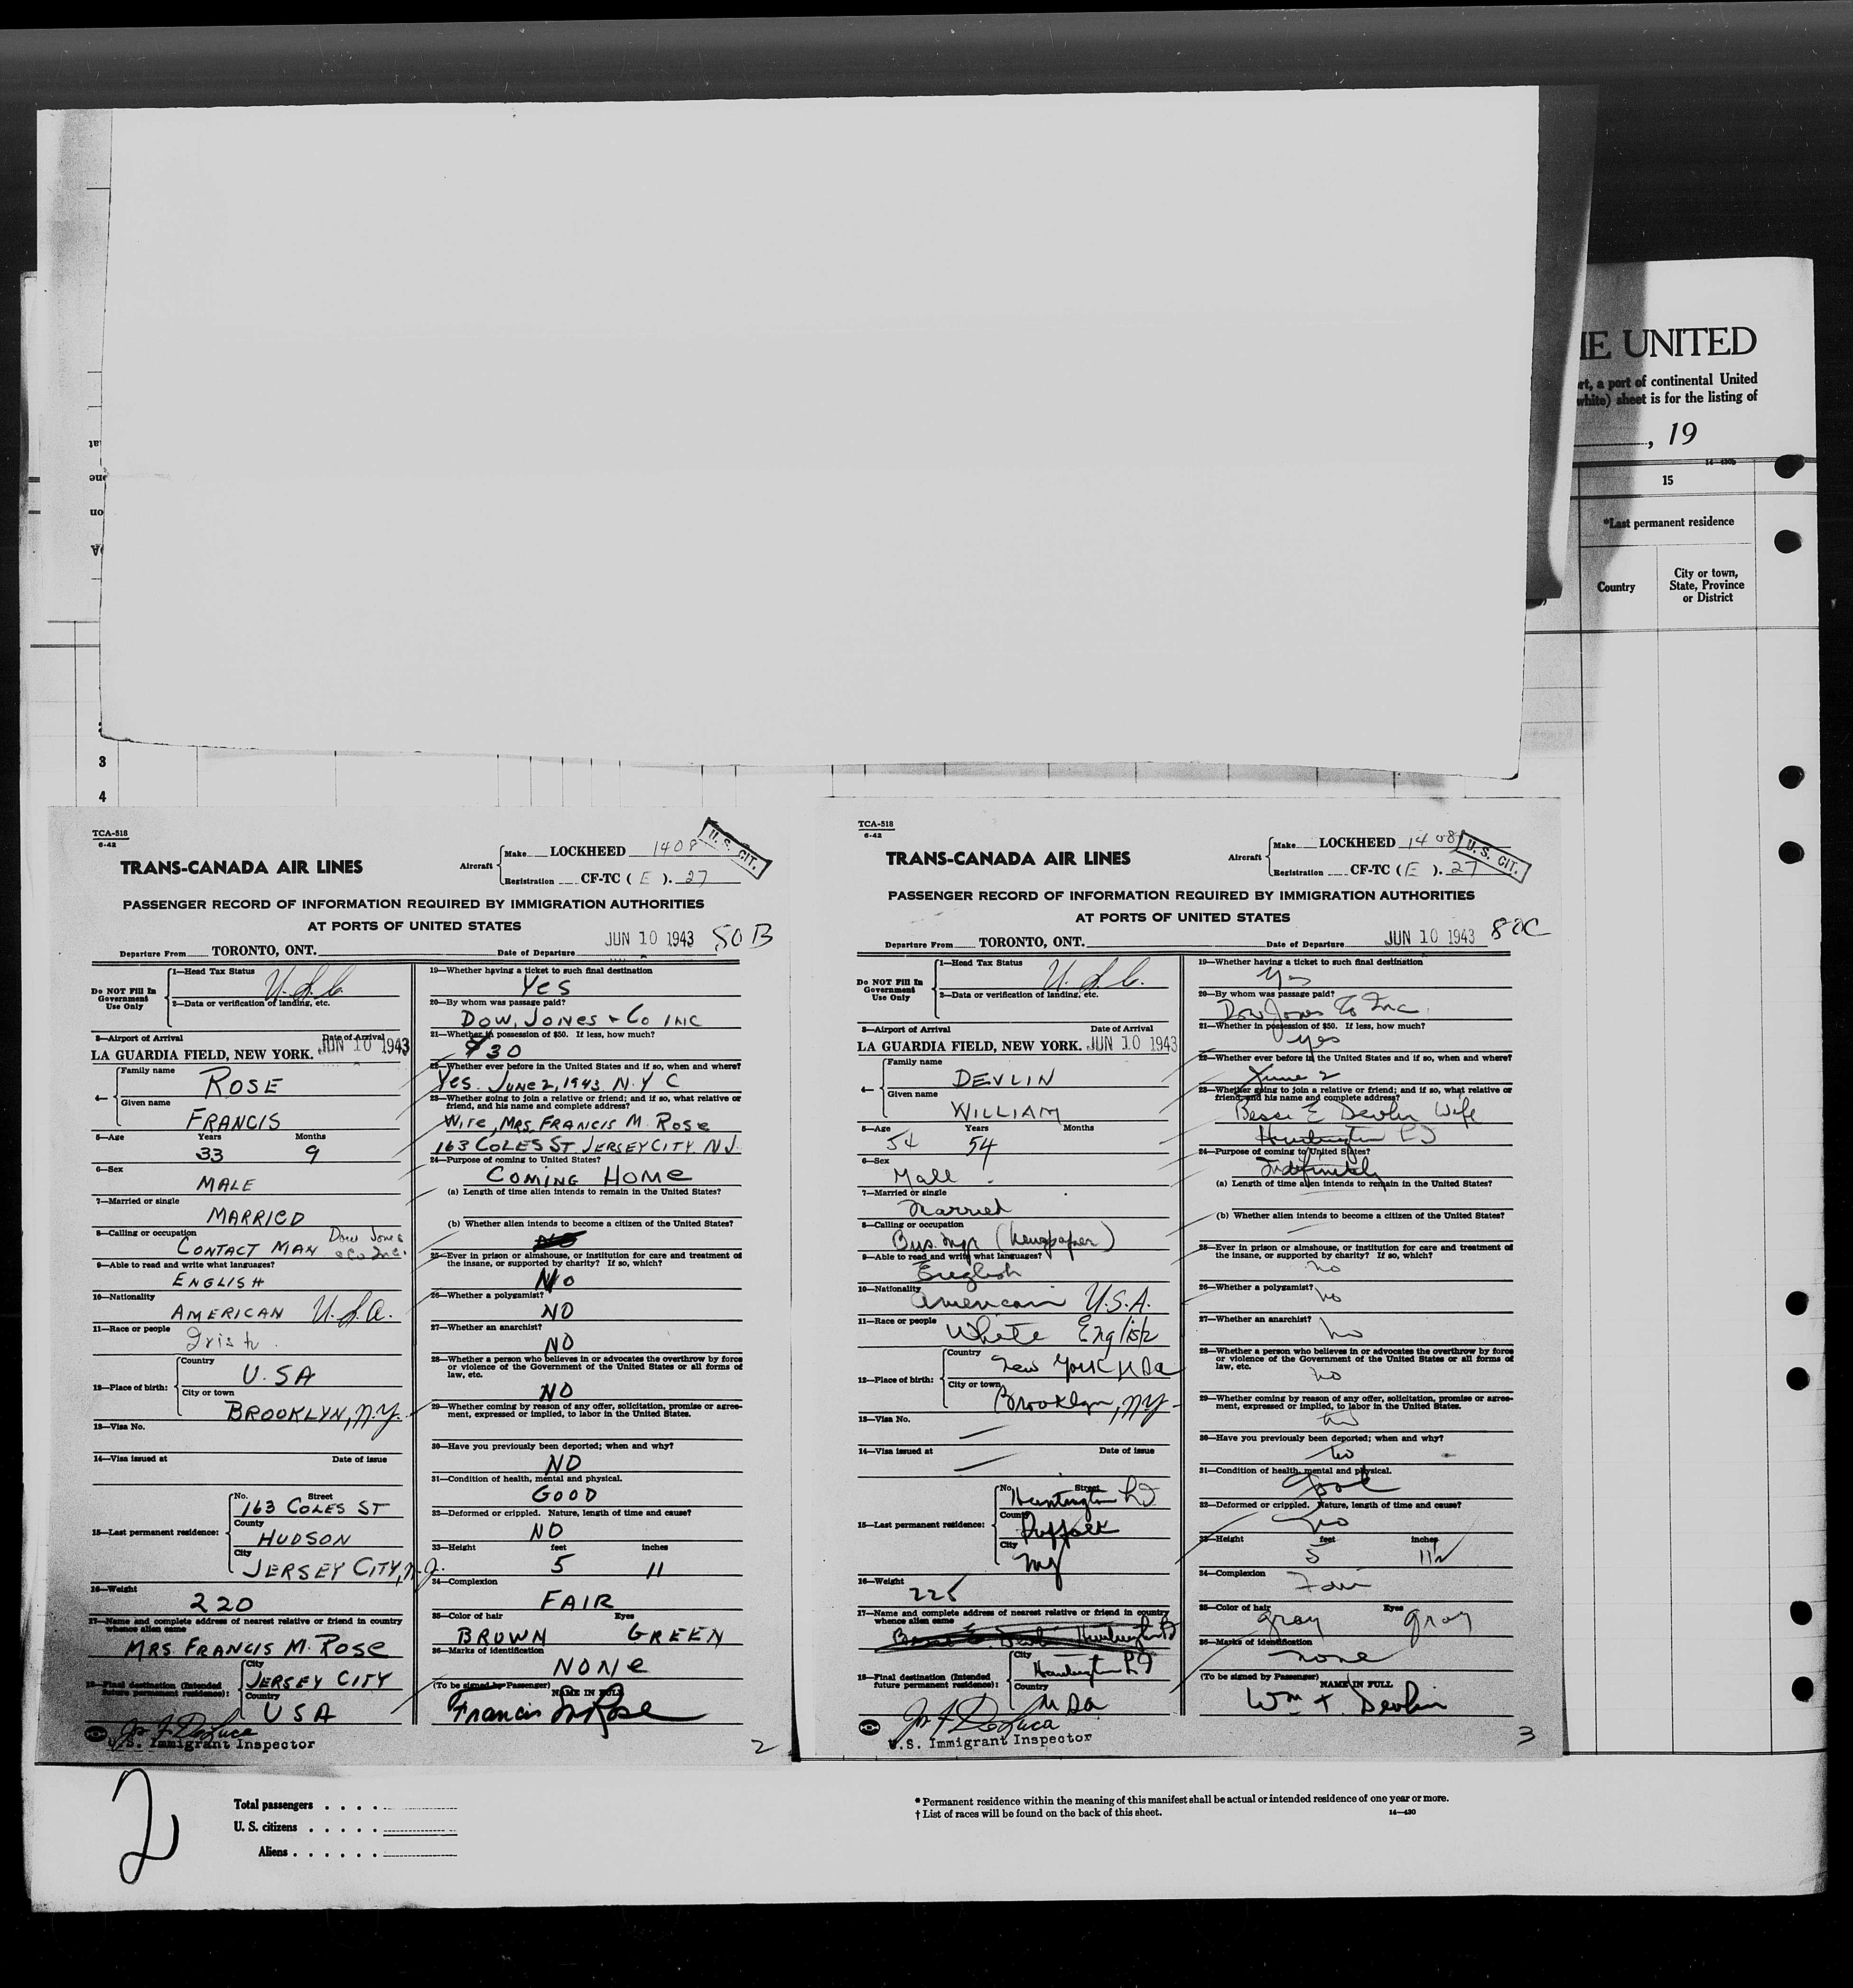 IE UNITED
rt, a port of continental United
white) sheet is for the listing of
, 19
14—430b
15
*Last permanent residence
Country
City or town,
State, Province
or District
3
4
TCA-518
6-42
TRANS-CANADA AIR LINES
Aircraft
Make LOCKHEED 1408
Registration CF-TC ( E ). 27
U. S. CIT.
PASSENGER RECORD OF INFORMATION REQUIRED BY IMMIGRATION AUTHORITIES
AT PORTS OF UNITED STATES
JUN 10 1943 80 B
Departure From TORONTO, ONT. Date of Departure
Do NOT Fill In
Government
Use Only
1—Head Tax Status
U.S.C.
2—Data or verification of landing, etc.
3—Airport of Arrival Date of Arrival
LA GUARDIA FIELD, NEW YORK. JUN 10 1943
4—
Family name
ROSE
Given name
FRANCIS
5—Age Years Months
33 9
6—Sex
MALE
7—Married or single
MARRIED
8—Calling or occupation
CONTACT MAN Dow Jones
& Co Inc.
9—Able to read and write what languages?
ENGLISH
10—Nationality
AMERICAN U.S.A.
11—Race or people
Irish
12—Place of birth:
Country
U.SA
City or town
BROOKLYN, N.Y.
13—Visa No.
14—Visa issued at Date of issue
15—Last permanent residence:
No. Street
163 COLES ST
County
HUDSON
City
JERSEY CITY, N.J.
16—Weight
220
17—Name and complete address of nearest relative or friend in country
whence alien came
MRS. FRANCIS M. ROSE
18—Final destination (Intended
future permanent residence):
City
JERSEY CITY
Country
U S A
Jos F DeLuca
U.S. Immigrant Inspector
19—Whether having a ticket to such final destination
YES
20—By whom was passage paid?
DOW, JONES & CO INC
21—Whether in possession of $50. If less, how much?
$30
22—Whether ever before in the United States and if so, when and where?
YES. JUNE 2, 1943 N.Y C
23—Whether going to join a relative or friend; and if so, what relative or
friend, and his name and complete address?
WIFE, MRS. FRANCIS M. ROSE
163 COLES ST JERSEY CITY. NJ.
24—Purpose of coming to United States?
COMING HOME
(a) Length of time alien intends to remain in the United States?
(b) Whether alien intends to become a citizen of the United States?
25—Ever in prison or almshouse, or institution for care and treatment of
the insane, or supported by charity? If so, which?
NO
26—Whether a polygamist?
NO
27—Whether an anarchist?
NO
28—Whether a person who believes in or advocates the overthrow by force
or violence of the Government of the United States or all forms of
law, etc.
NO
29—Whether coming by reason of any offer, solicitation, promise or agree-
ment, expressed or implied, to labor in the United States.
30—Have you previously been deported; when and why?
NO
31—Condition of health, mental and physical.
GOOD
32—Deformed or crippled. Nature, length of time and cause?
NO
33—Height feet inches
5 11
34—Complexion
FAIR
35—Color of hair Eyes
BROWN GREEN
36—Marks of identification
NONE
(To be signed by Passenger) NAME IN FULL
Francis M Rose
2
TCA-518
6-42
TRANS-CANADA AIR LINES
Aircraft
Make LOCKHEED 1408
Registration CF-TC ( E ). 27
U. S. CIT.
PASSENGER RECORD OF INFORMATION REQUIRED BY IMMIGRATION AUTHORITIES
AT PORTS OF UNITED STATES
JUN 10 1943 80C
Departure From TORONTO, ONT. Date of Departure
Do NOT Fill In
Government
Use Only
1—Head Tax Status
U.S.C.
2—Data or verification of landing, etc.
3—Airport of Arrival Date of Arrival
LA GUARDIA FIELD, NEW YORK. JUN 10 1943
4—
Family name
DEVLIN
Given name
WILLIAM
5—Age Years Months
54 54
6—Sex
Male
7—Married or single
Married
8—Calling or occupation
Bus. Mgr (Newspaper)
9—Able to read and write what languages?
English
10—Nationality
American U.S.A.
11—Race or people
White English
12—Place of birth:
Country
New York USA
City or town
Brooklyn, NY
13—Visa No.
14—Visa issued at Date of issue
15—Last permanent residence:
No. Street
Huntington LI
County
Suffolk
City
NY
16—Weight
225
17—Name and complete address of nearest relative or friend in country
whence alien came
18—Final destination (Intended
future permanent residence):
City
Huntington LI
Country
USA
Jos F DeLuca
U.S. Immigrant Inspector
19—Whether having a ticket to such final destination
Yes
20—By whom was passage paid?
Dow Jones Co Inc.
21—Whether in possession of $50. If less, how much?
yes
22—Whether ever before in the United States and if so, when and where?
June 2
23—Whether going to join a relative or friend; and if so, what relative or
friend, and his name and complete address?
Bessie E Devlin Wife
Huntington LI
24—Purpose of coming to United States?
Indefinitely
(a) Length of time alien intends to remain in the United States?
(b) Whether alien intends to become a citizen of the United States?
25—Ever in prison or almshouse, or institution for care and treatment of
the insane, or supported by charity? If so, which?
no
26—Whether a polygamist?
no
27—Whether an anarchist?
no
28—Whether a person who believes in or advocates the overthrow by force
or violence of the Government of the United States or all forms of
law, etc.
no
29—Whether coming by reason of any offer, solicitation, promise or agree-
ment, expressed or implied, to labor in the United States.
no
30—Have you previously been deported; when and why?
no
31—Condition of health, mental and physical.
good
32—Deformed or crippled. Nature, length of time and cause?
no
33—Height feet inches
5 11½
34—Complexion
Fair
35—Color of hair Eyes
gray gray
36—Marks of identification
none
(To be signed by Passenger) NAME IN FULL
Wm T. Devlin
3
2
Total passengers
U. S. citizens
Aliens
* Permanent residence within the meaning of this manifest shall be actual or intended residence of one year or more.
† List of races will be found on the back of this sheet. 14—430